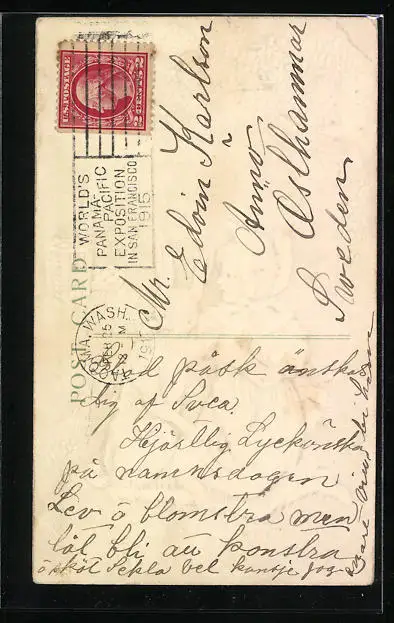 U.S. POSTAGE
2 CENTS 2
WORLD'S
PANAMA-
PACIFIC
EXPOSITION
IN SAN FRANCISCO
1915
TACOMA, WASH.
FEB 25
POST CARD
Mr. Edvin Karlson
Änno
Öslhammar
Sweden
Glad påsk önskas
dig af Svea.
Hjärtlig Lyckönskan
på namnsdagen
Lev o blomstra men
låt bli att konstra
o sköt Tekla vel kansje jag